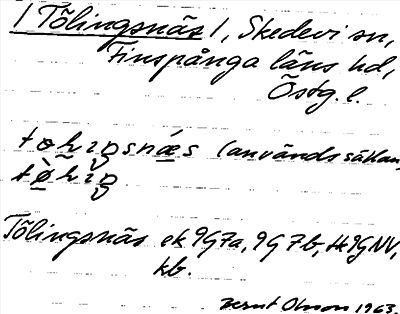 /Tõlingsnäs/, Skedevi sn,
Finspånga läns hd,
Östg. l.
(används sällan,
Tõlingsnäs ek 9G7a, 9G7b, H9GNV,
kb.
Bernt Olsson 1963.